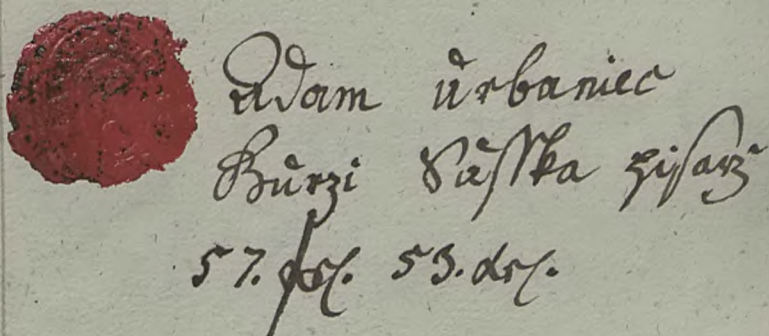 Adam Urbaniec
Burzi Saſſka piſarz
57. 53. drſ.